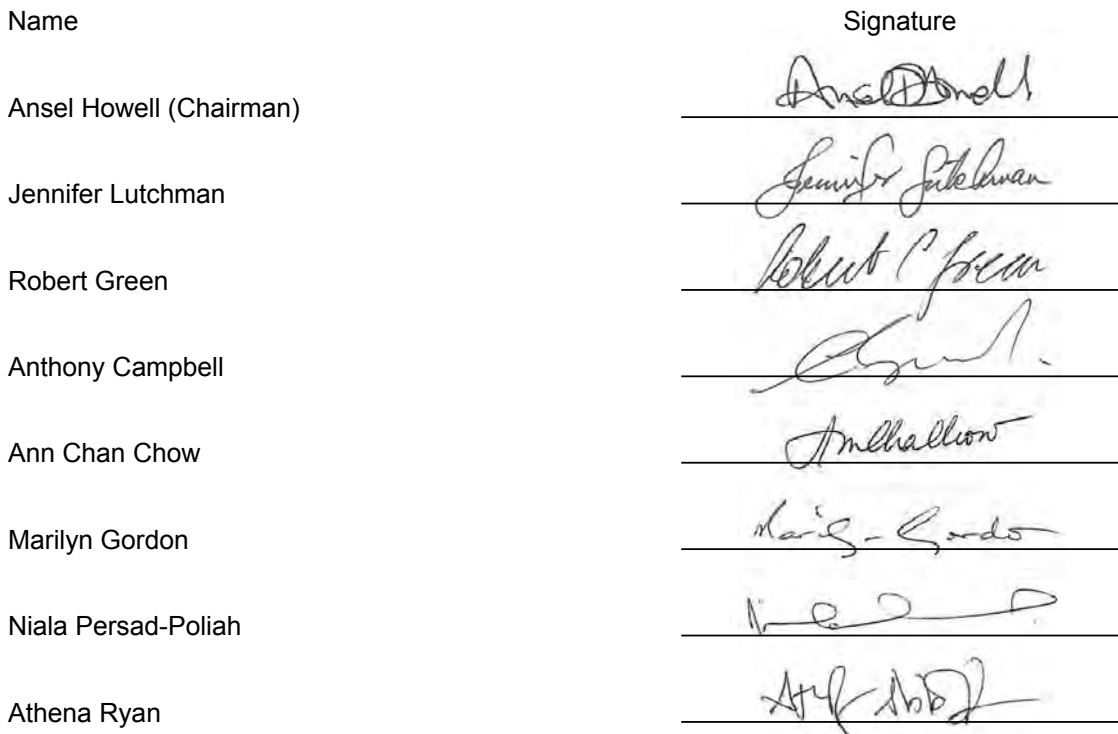 Name Signature
Ansel Howell (Chairman) Ansel Howell
Jennifer Lutchman Jennifer Lutchman
Robert Green Robert C Green
Anthony Campbell
Ann Chan Chow
Marilyn Gordon Marilyn Gordon
Niala Persad-Poliah
Athena Ryan